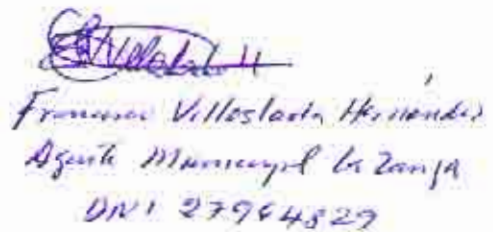 Francisco Villoslada Hernández
Agente Municipal la Zanja
DNI 27964829